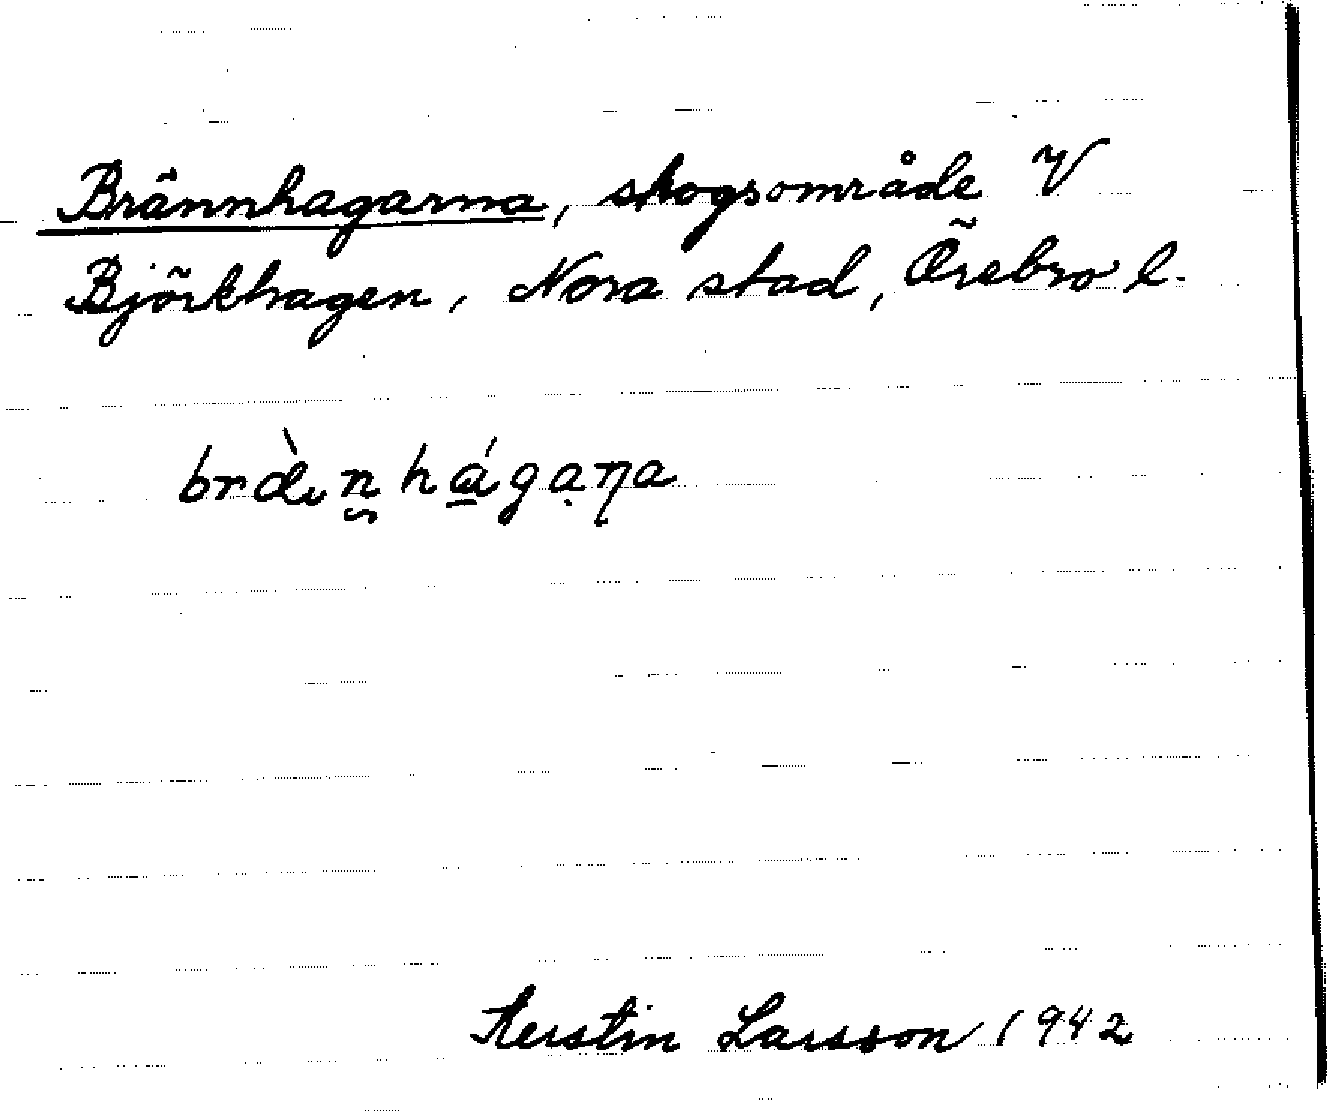 Brännhagarna, skogsområde V
Björkhagen, Nora stad, Örebro l.
Kerstin Larsson 1942